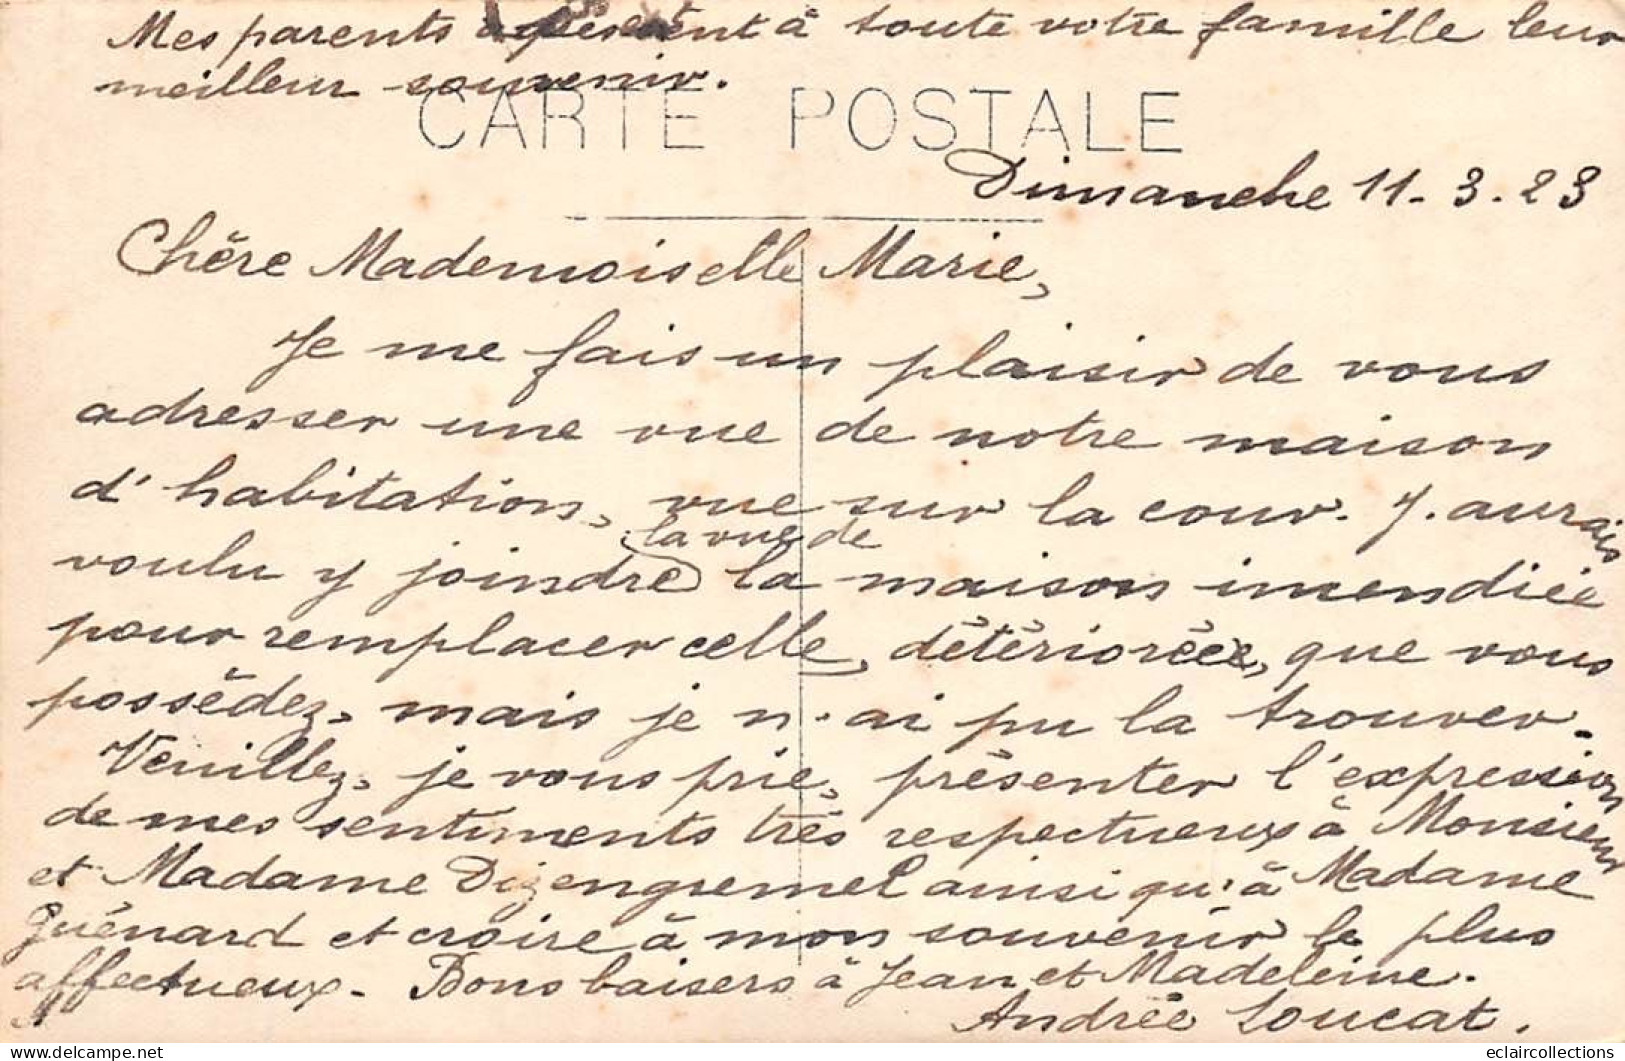 Mes parents à présent à toute votre famille leur
meilleur souvenir.
CARTE POSTALE
Dimanche 11-3.23
Chère Mademoiselle Marie,
Je me fais un plaisir de vous
adresser une vue de notre maison
d'habitation, vue sur la cour. J'aurais
la vue de
voulu y joindre la maison incendiée
pour remplacer celle, détériorée, que vous
possédez, mais je n'ai pu la trouver.
Veuillez, je vous prie, présenter l'expression
de mes sentiments très respectueux à Monsieur
et Madame ainsi qu'à Madame
Guénard et croire à mon souvenir le plus
affectueux. Bons baisers à Jean et Madeleine.
Andrée Loucat.
eclaircollections